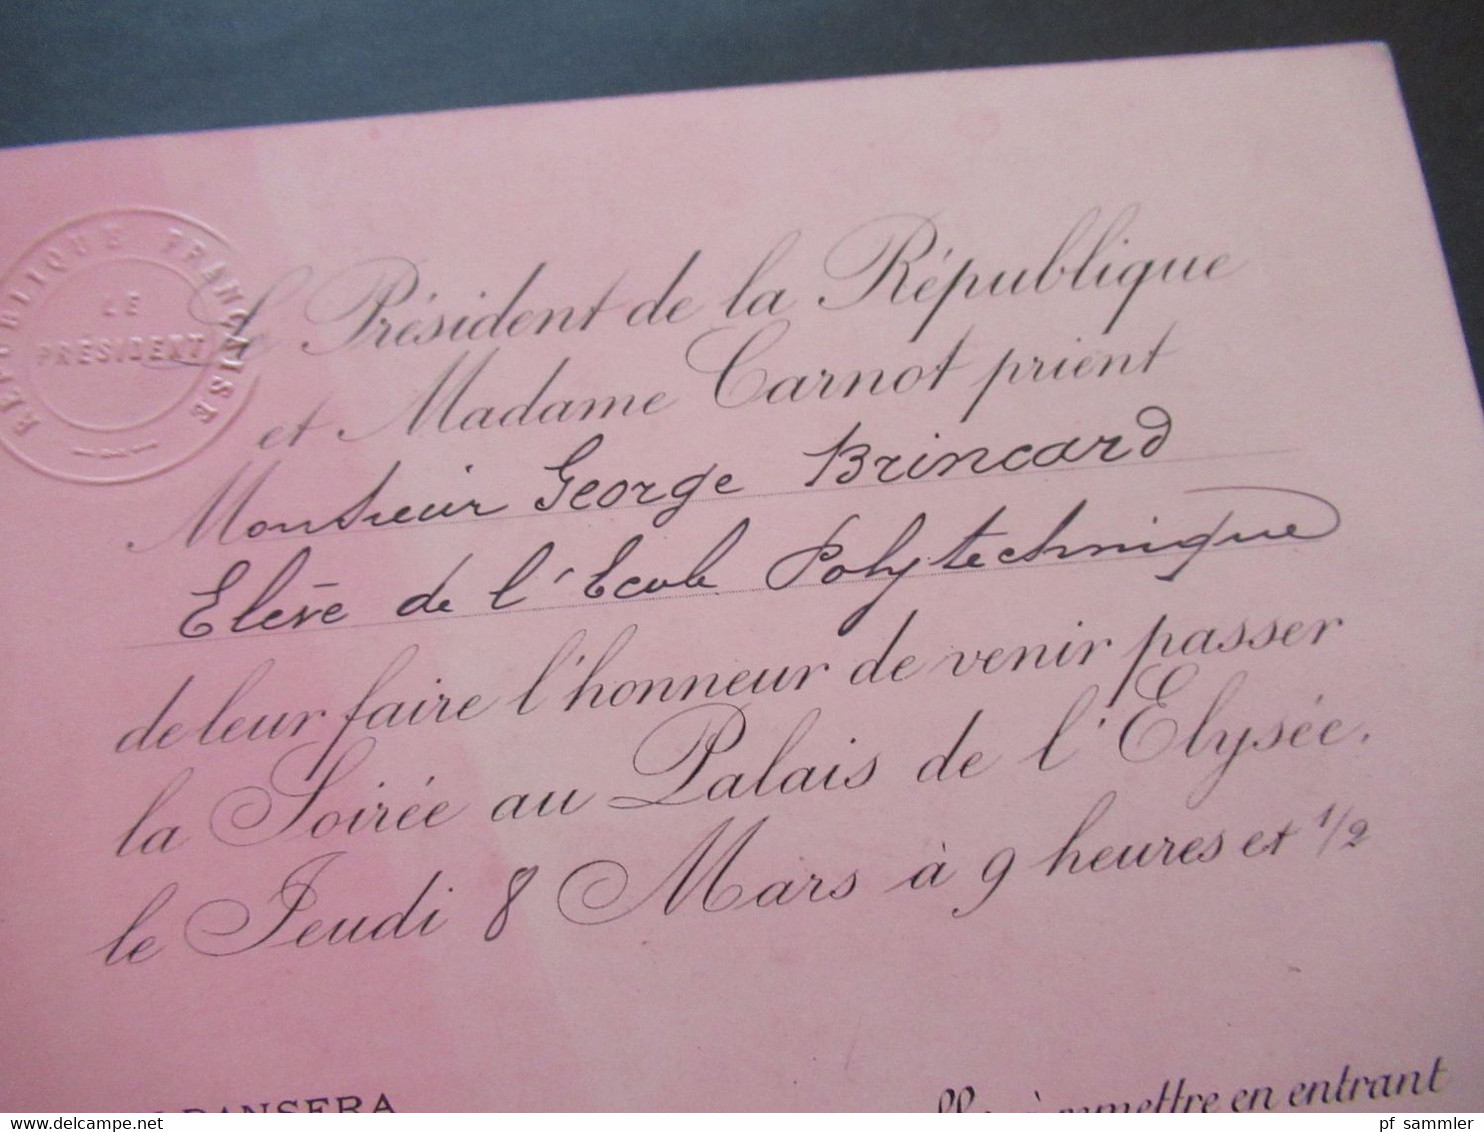 RÉPUBLIQUE FRANÇAISE
LE
PRÉSIDENT
Le Président de la République
et Madame Carnot prient
Monsieur George Brincard
Elève de l'Ecole Polytechnique
de leur faire l'honneur de venir passer
la Soirée au Palais de l'Elysée.
le Jeudi 8 Mars à 9 heures et 1/2
DANSERA
à remettre en entrant
pf_sammler